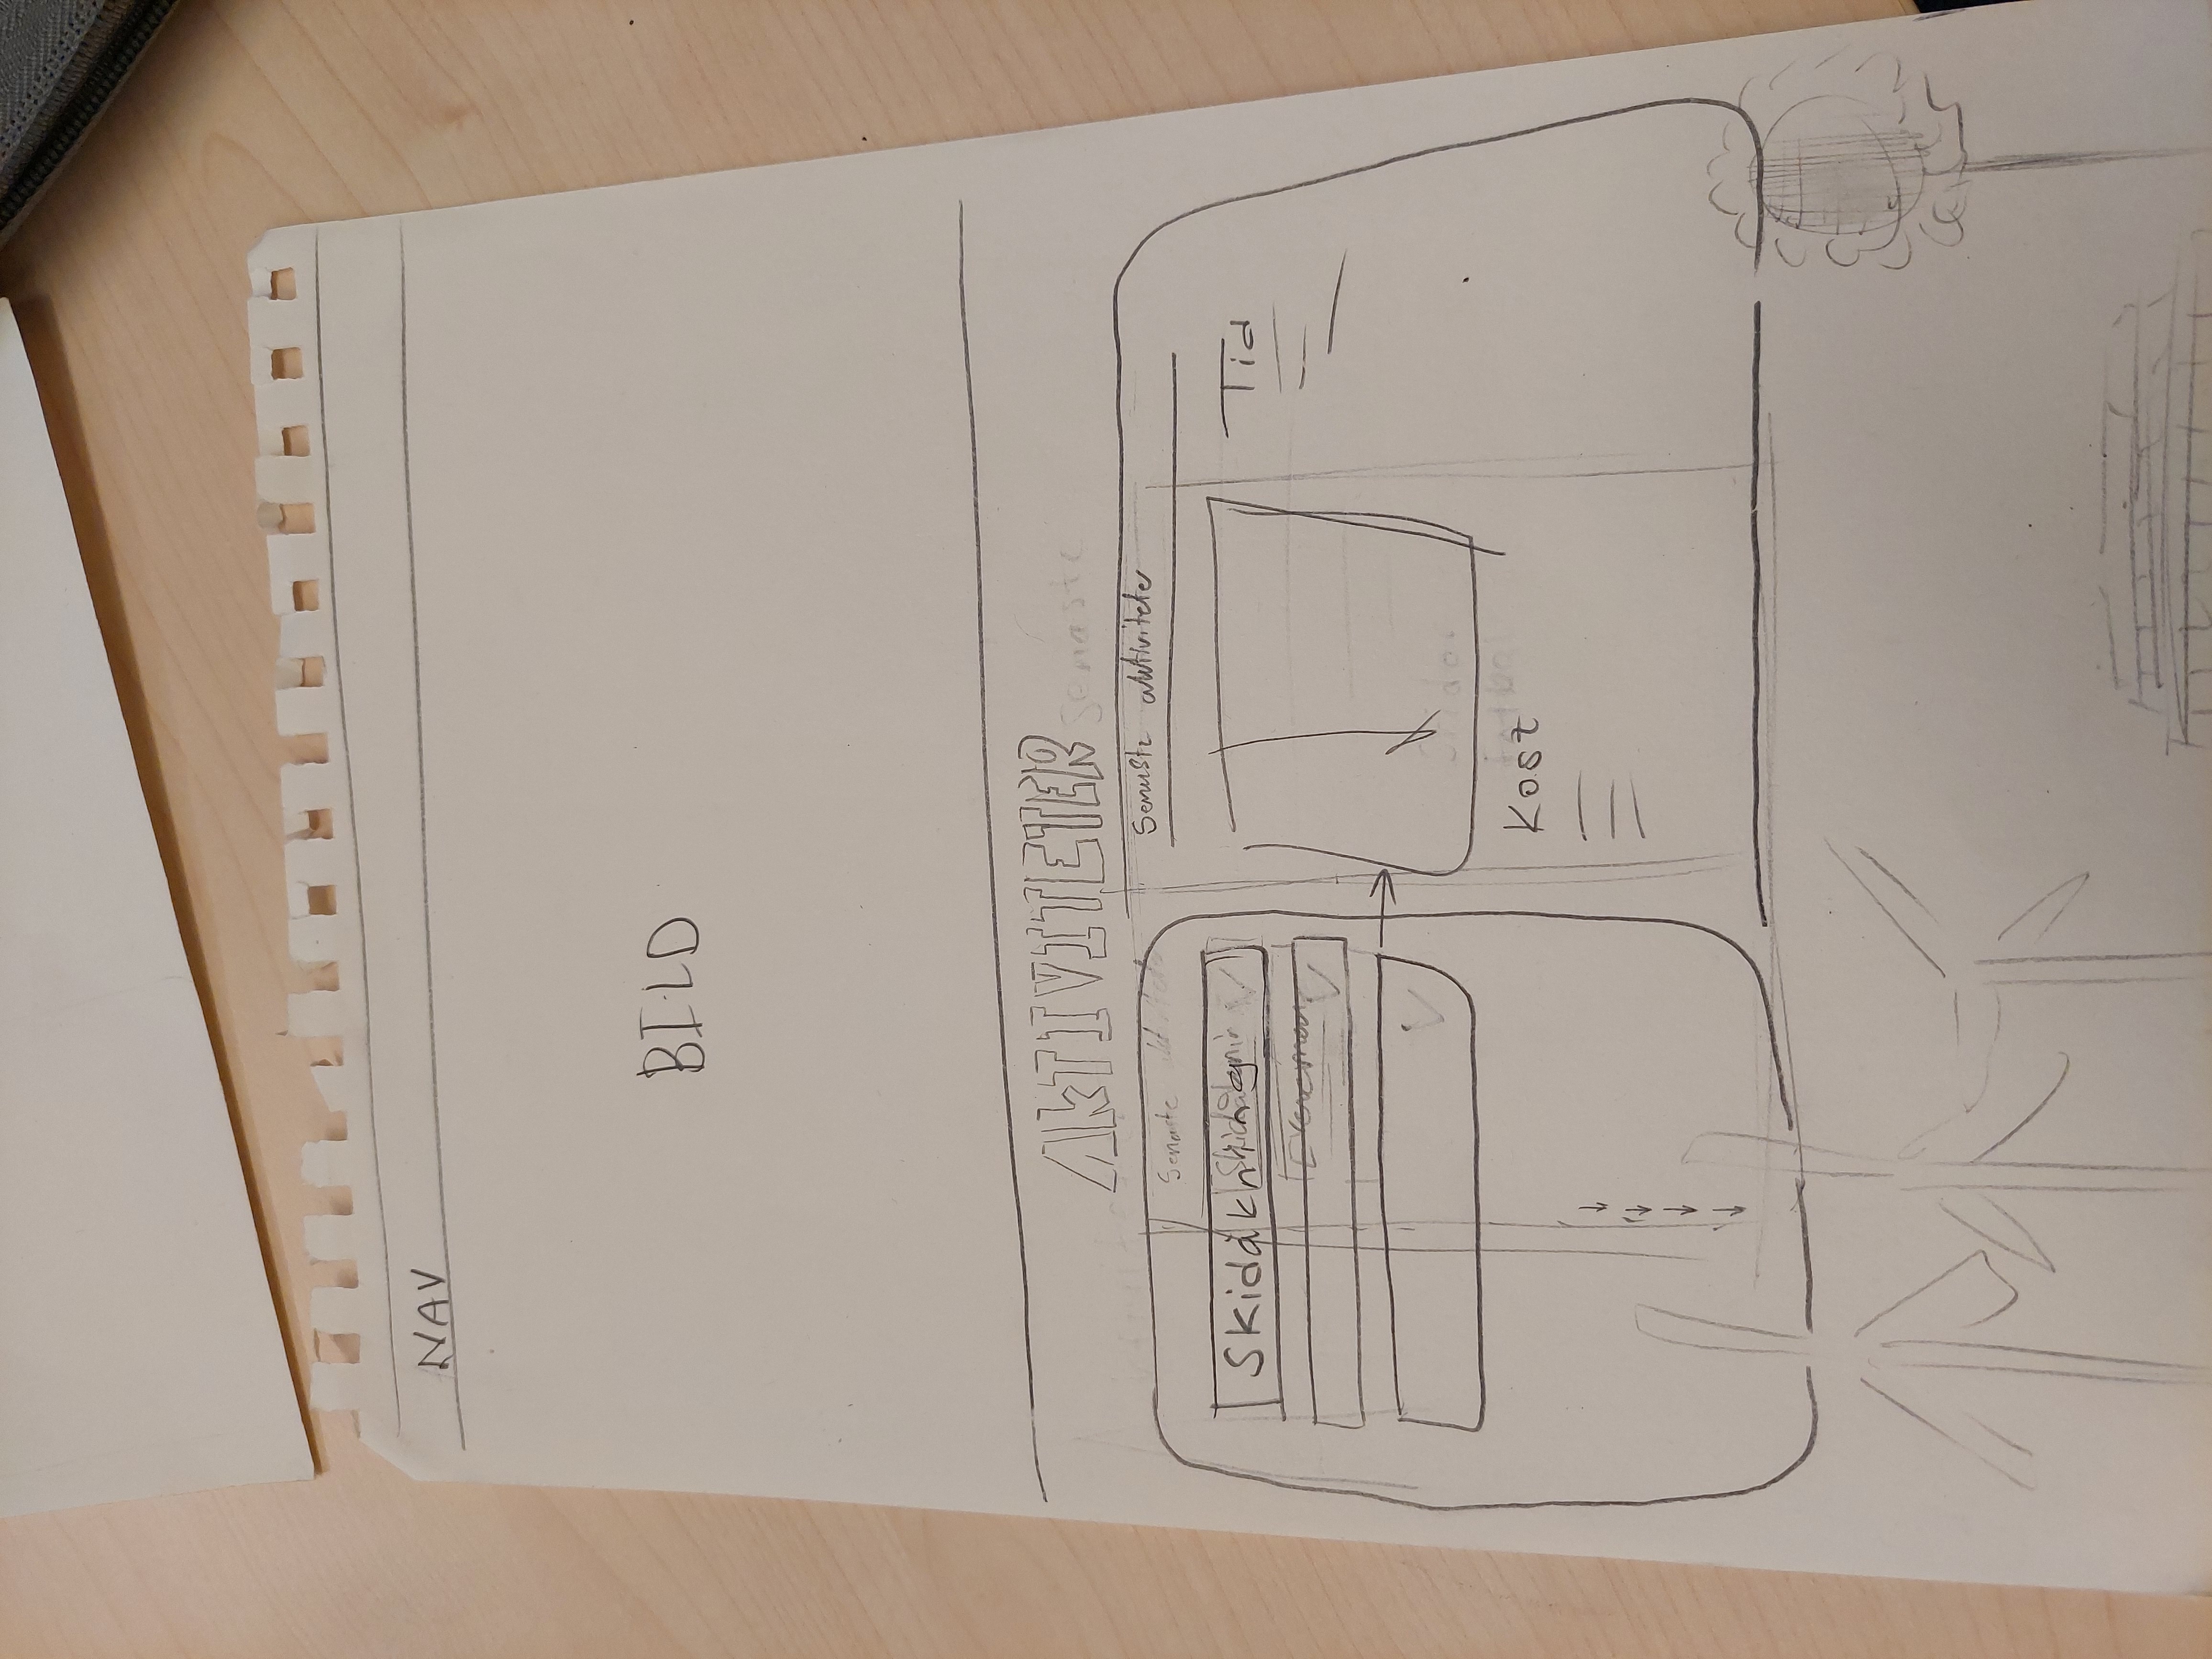 NAV
BILD
AKTIVITETER
Senaste
Senaste aktiviteter
Senaste aktiviteter
Skidåkning
Tid
Kost